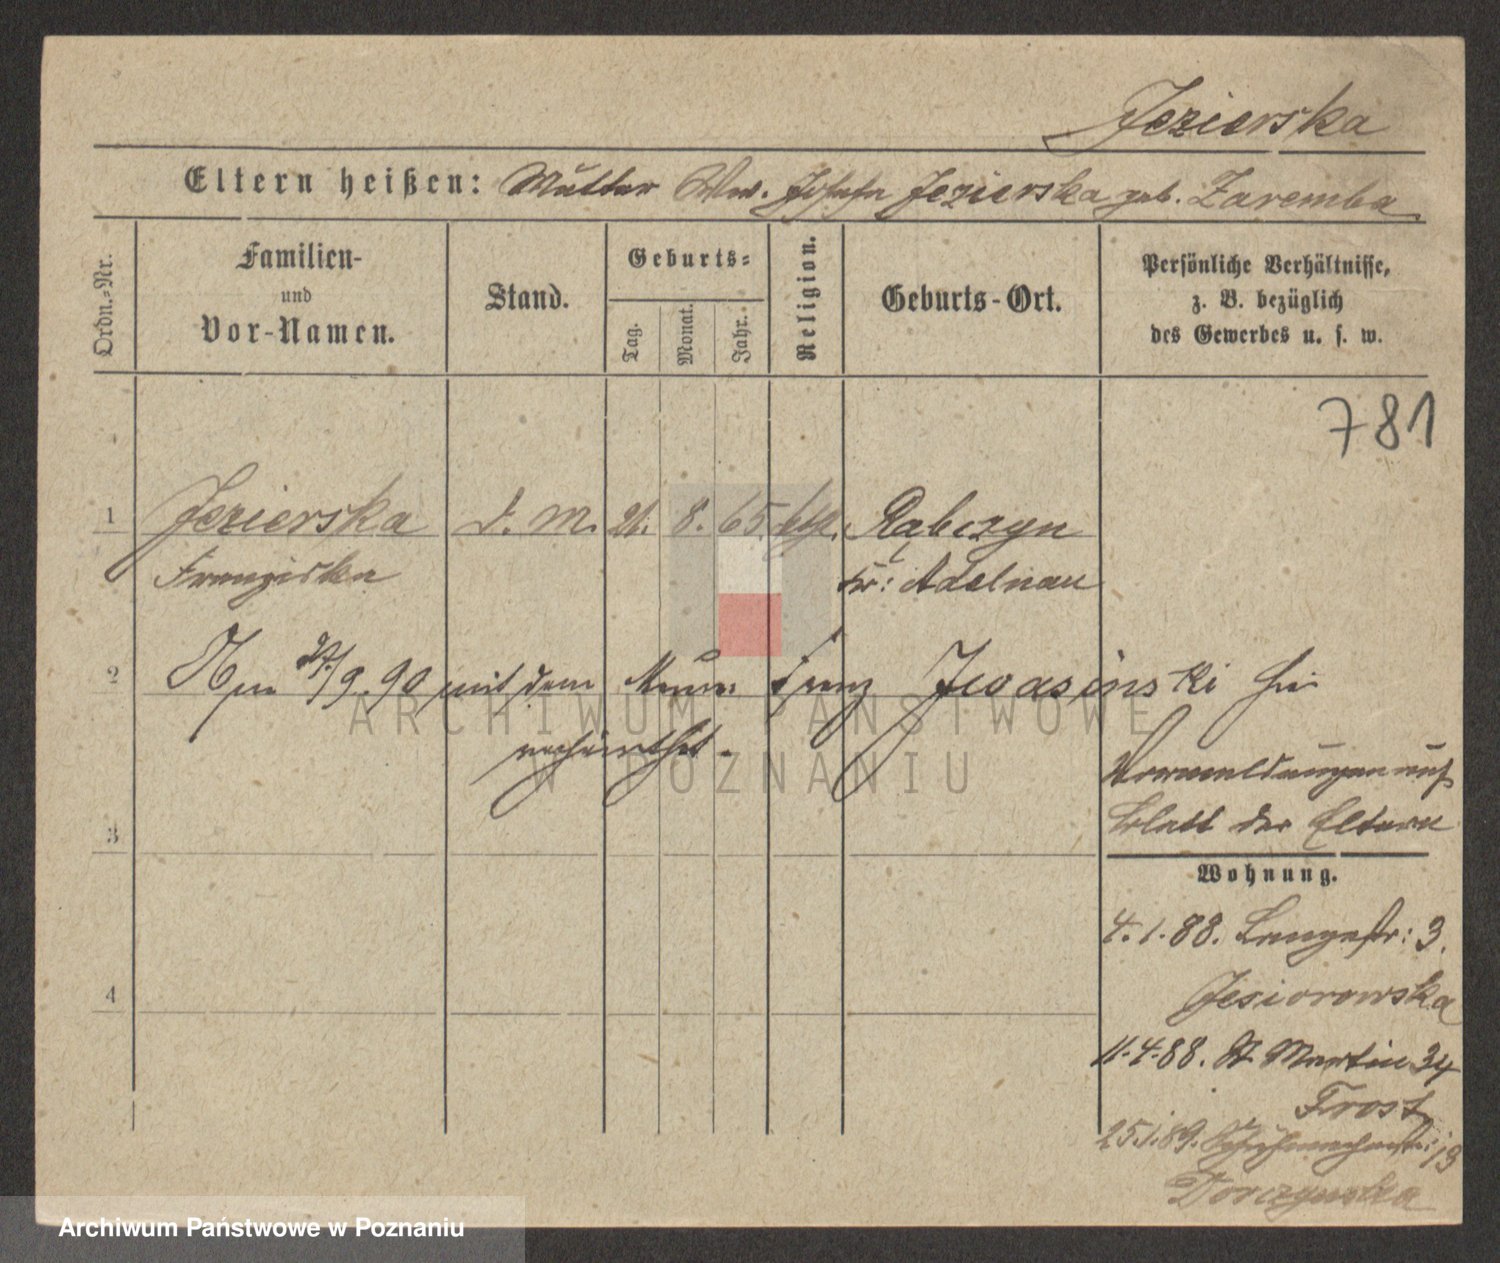 Jezierska
Eltern heißen: Mutter Ww. Josefa Jezierska geb. Zaremba
Ordn.-Nr.
Familien-
und
Vor-Namen.
Stand.
Geburts-
Tag.
Monat.
Jahr.
Religion.
Geburts-Ort.
Persönliche Verhältnisse,
z. B. bezüglich
des Gewerbes u. s. w.
781
1 Jezierska d. M. 21. 8. 65. kth. Rabczyn
Franziska Kr: Adelnau
2 Am 27/9. 90 mit dem Maurer Franz Iwasinski hier
verheirathet.
ARCHIWUM PAŃSTWOWE
W POZNANIU
Vormeldungen auf
Blatt der Eltern
3
Wohnung.
4.1.88. Langestr: 3.
Jesiorowska
4
11.4.88. St Martin 34
Frost
25.1.89. Schuhmacherstr: 13
Dorczynska
Archiwum Państwowe w Poznaniu